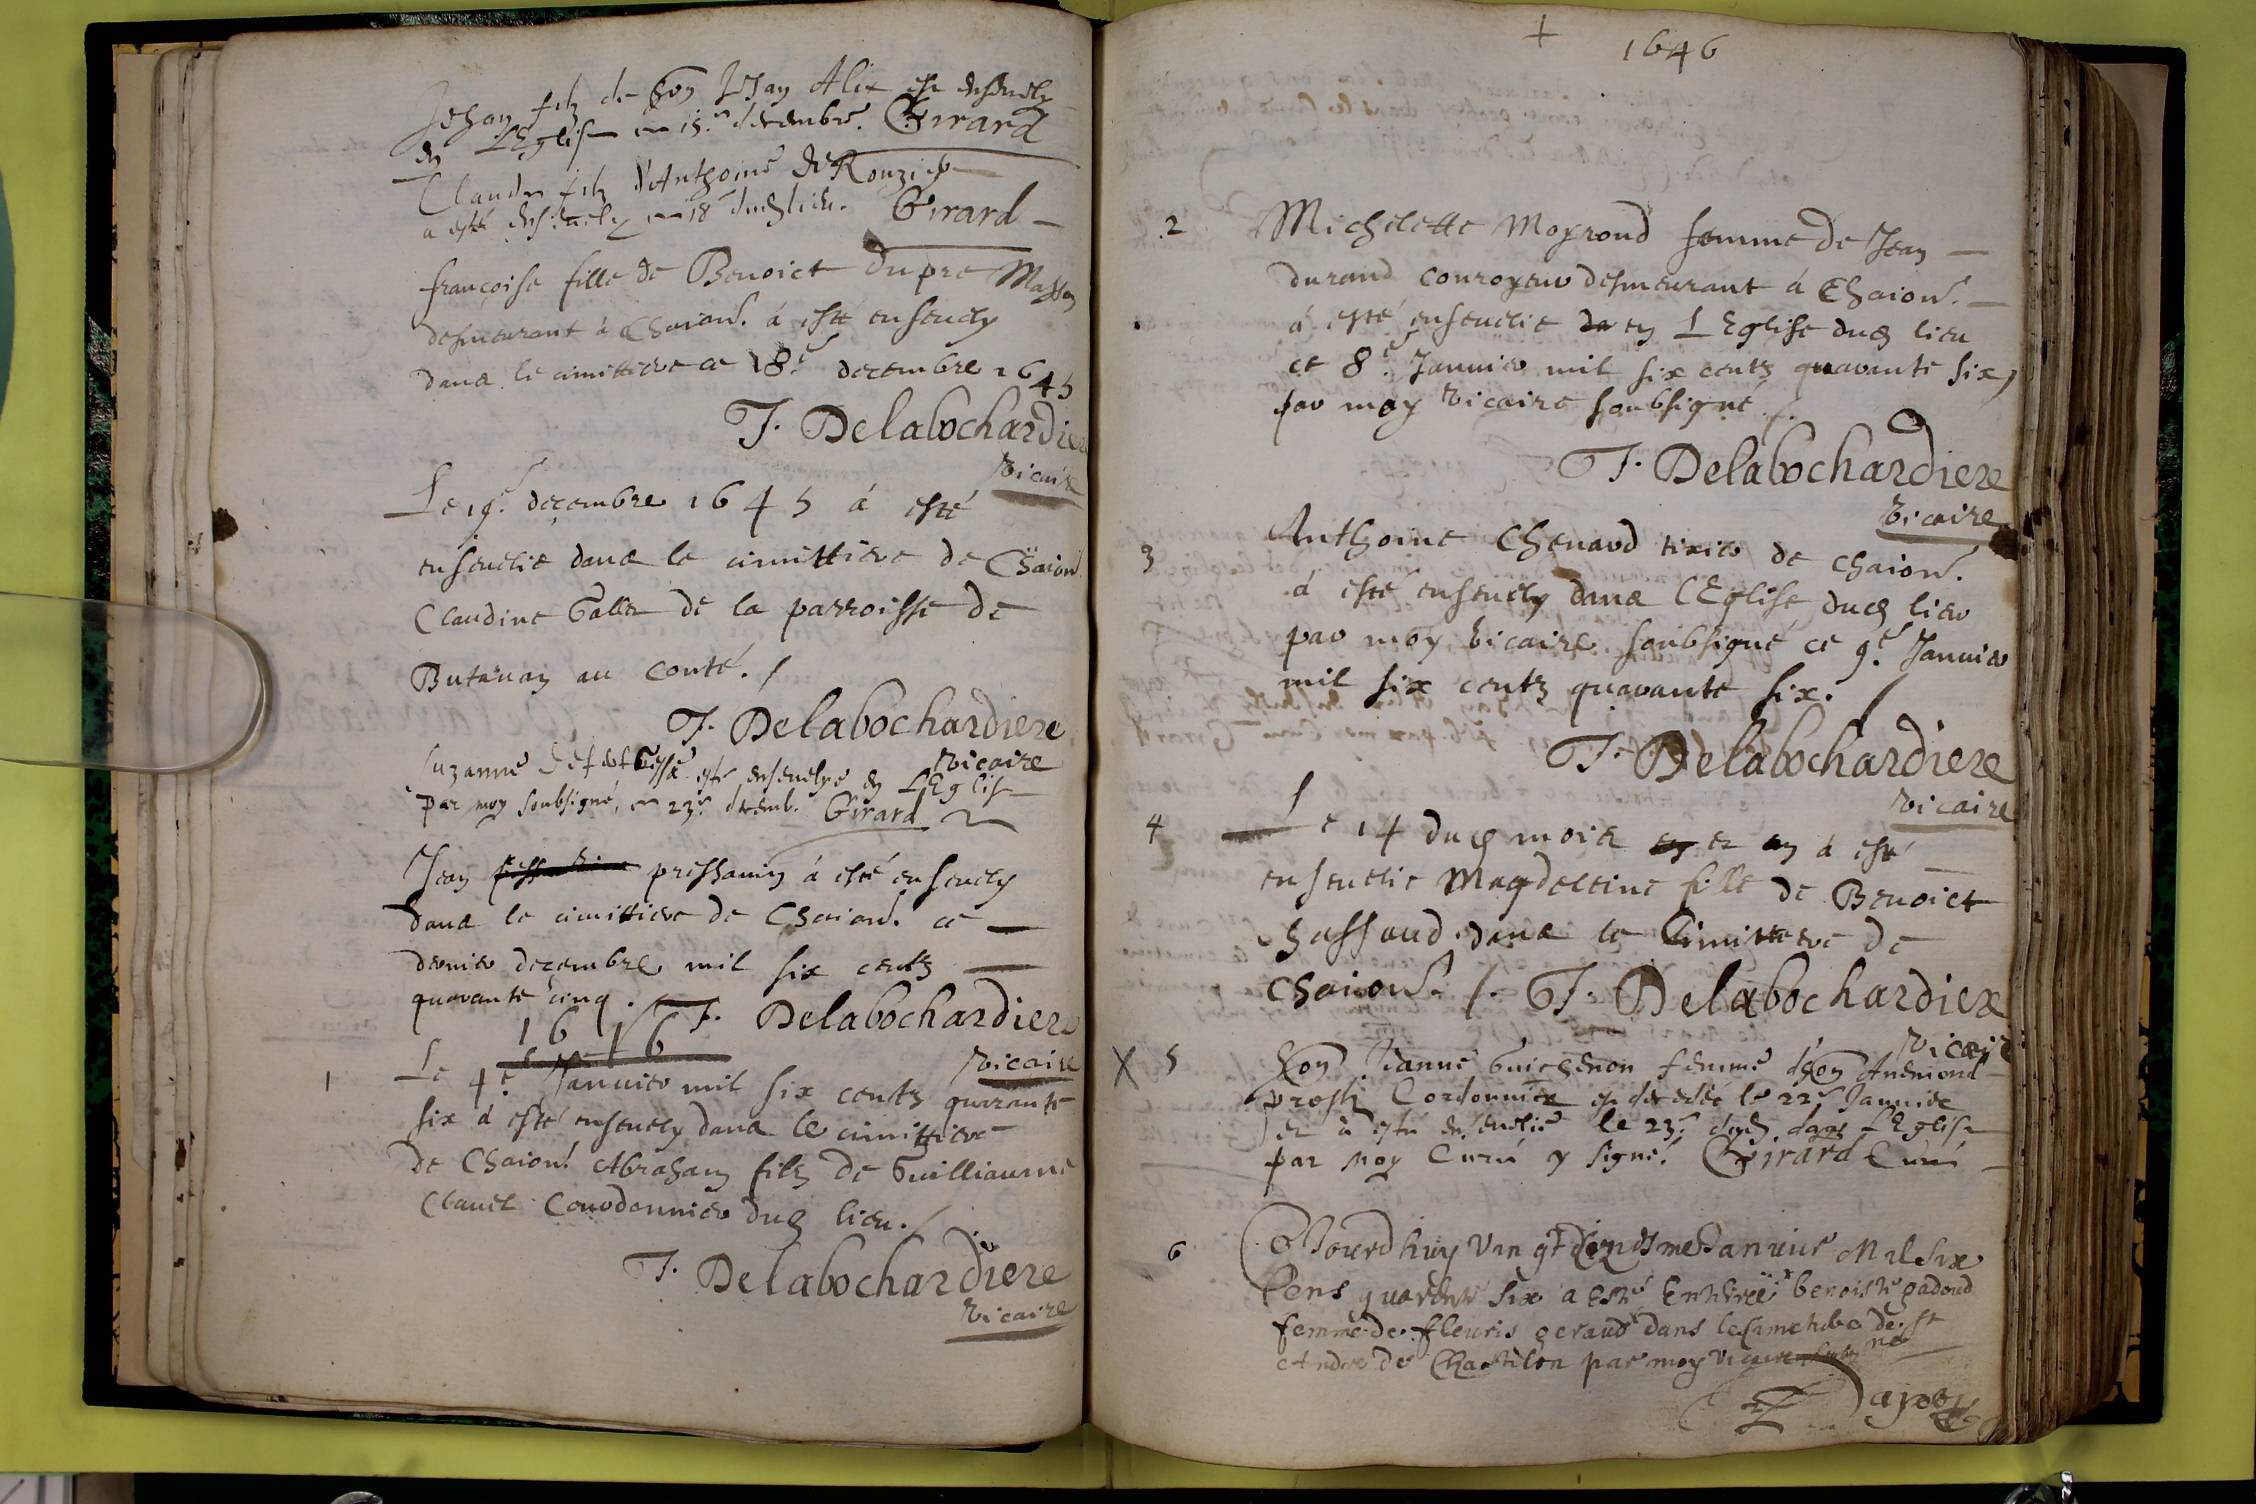 Jehan filz de hon Jehan Alix est ensevely
en LEglise ce 15.e decembre. Girard
Claude filz d'Anthoine De Ronzier
a esté ensevely ce 18 dud lieu. Girard
françoise fille de Benoict Dupre Masson
demeurant à Chaion. à esté ensevely
dans le cimittiere ce 18.e decembre 1645
T. Delabochardiere
vicaire
Le 19.e decembre 1645 á esté
ensevelie dans le cimittiere de Chaion
Claudine Galle de la parroisse de
au Conté. /
T. Delabochardiere
vicaire
Suzanne esté ensevelye en LEglise
par moy soubsigné, ce 23.e decemb. Girard
Jean pressavin á esté ensevely
dans le cimittiere de Chaion. ce
dernier decembre mil six centz
quarante cinq. T. Delabochardiere
vicaire
1646
1 Le 4.e Januier mil six centz quarante
six á esté ensevely dans le cimittiere
de Chaion. Abraham filz de Guilliaume
Clauel Courdonnier dud lieu. /
T. Delabochardiere
vicaire
+ 1646
2 Michelette Moyroud femme de Jean
durand couroyeur demeurant á Chaion.
á esté ensevelie en L Eglise dud lieu
ce 8.e Januier mil six centz quarante six,
par moy vicaire soubsigné /.
T. Delabochardiere
vicaire
3 Anthoine Chenavd tixier de chaion.
á esté ensevely dans l'Eglise dud lieu
par moy vicaire soubsigné ce 9.e Januier
mil six centz quarante six. /
T. Delabochardiere
vicaire
4 Le 14 dud mois et an á esté
ensevelie Magdeleine fille de Benoict
dans le Cimittiere de
chaion. /. T. Delabochardiere
vicaire
X 5 hon. Jeanne Guichenon femme d'hon Anemond
prost Cordonnier est decedée le 22.e Januier
et à esté ensevelie le 23.e dud. dans LEglise
par moy Curé y signé. Girard Curé
6 Jourdhuy Januier Mil Six
Cens quarente six a esté Enterree benoiste gadoud
femme de fleuris geraud dans le Simetiere de st
Andre de Chastilon par moy vicaire